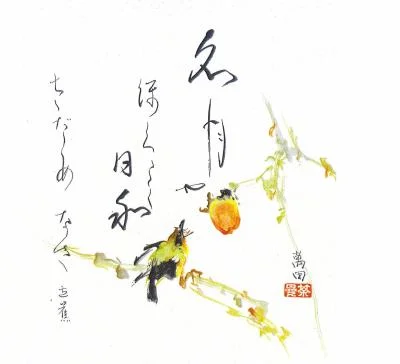 名月や
ほくこく
日和
さだめ なき 芭蕉
萬田